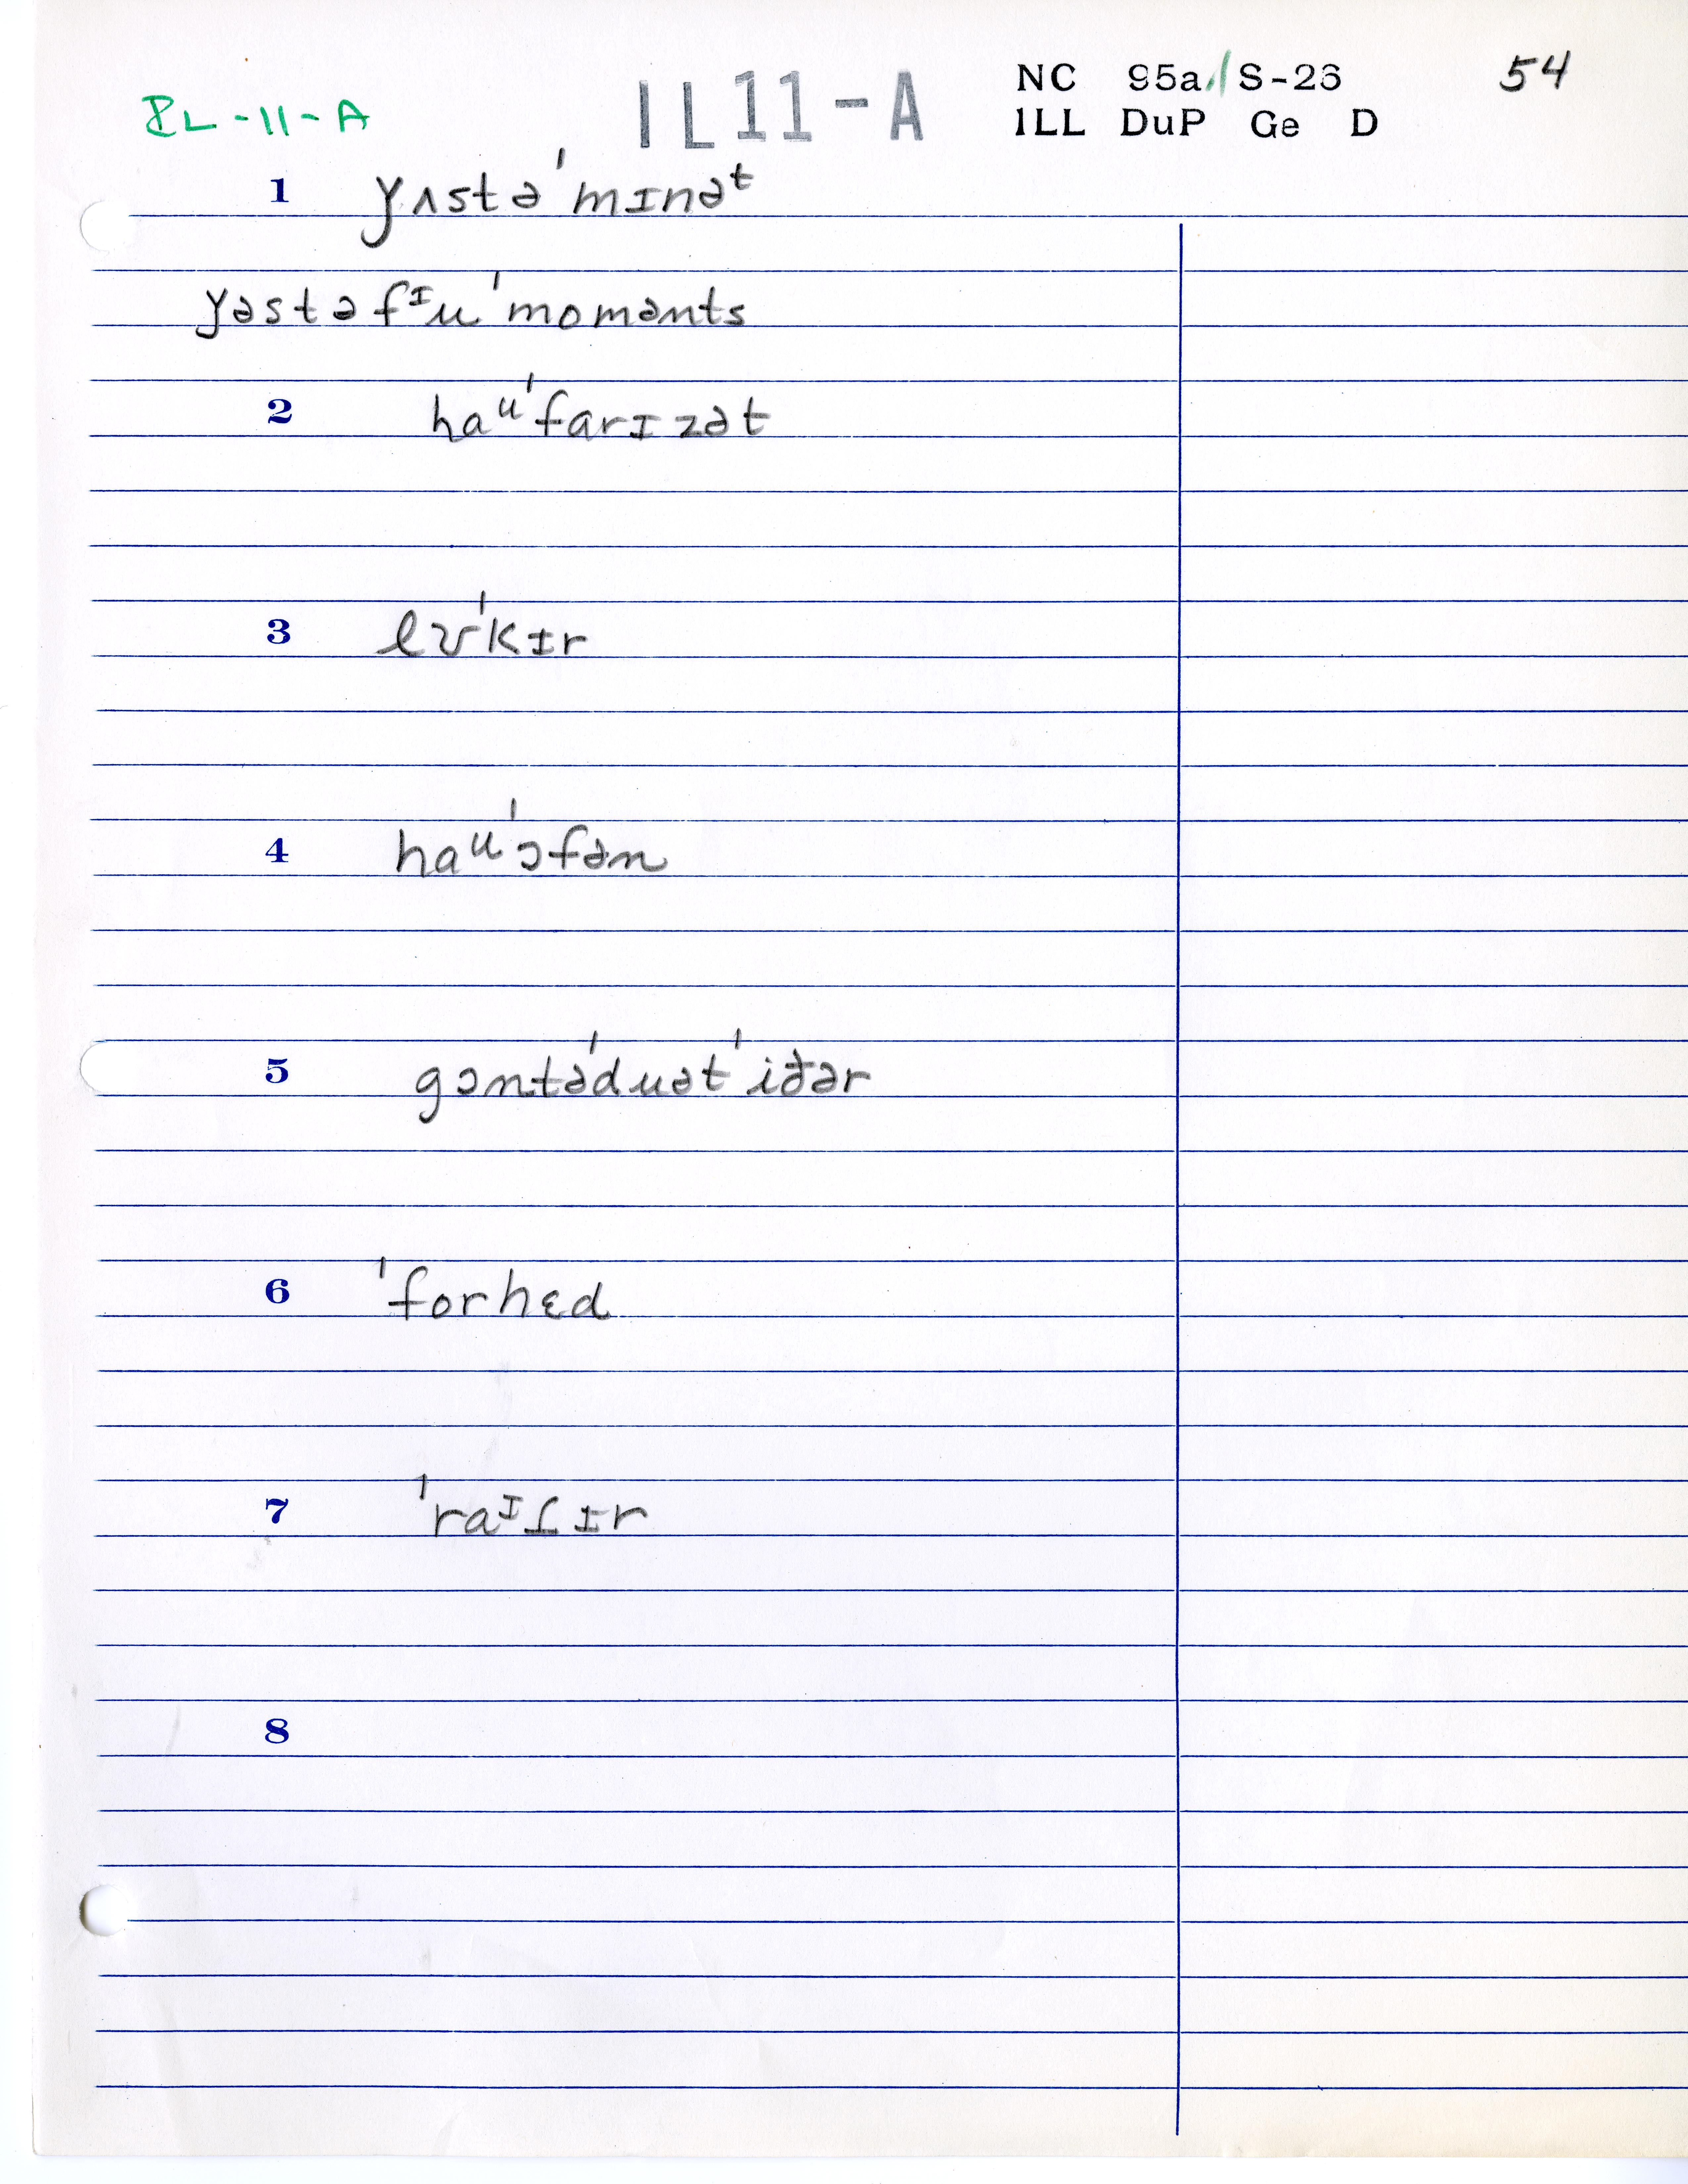 IL-11-A
IL11-A
NC 95a/S-26 54
ILL DuP Ge D
1 yʌstəˈmɪnəᵗ
yəstəfᶦuˈmomənts
2 haᵘˈfarɪzət
3 lʊˈkɪr
4 haᵘˈɔfən
5 gɔntəˈduətˈiðər
6 ˈforhɛd
7 ˈraᶦʈɪr
8